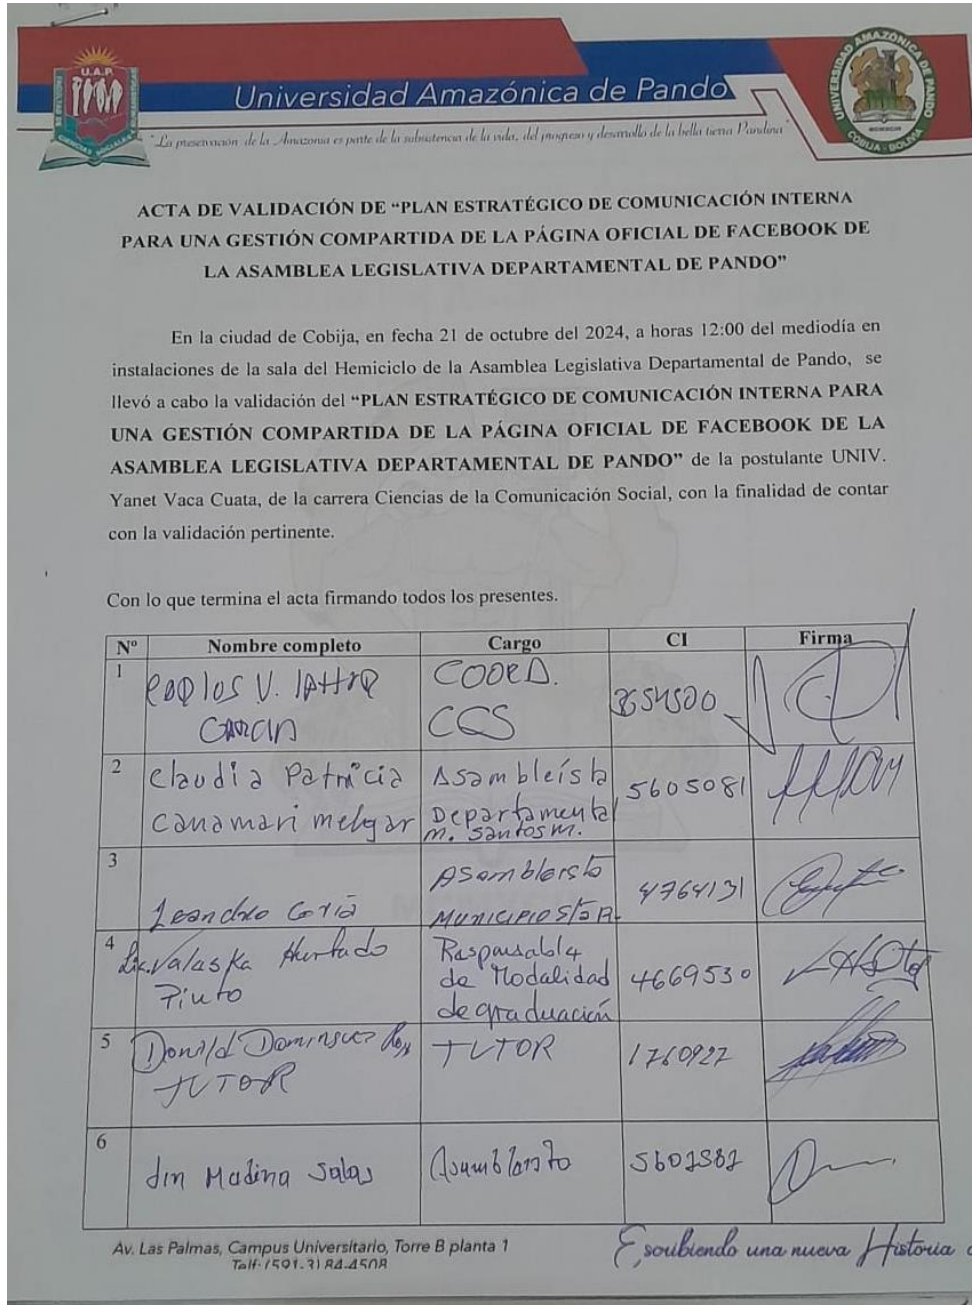 U.A.P.
Universidad Amazónica de Pando
"La preservación de la Amazonia es parte de la subsistencia de la vida, del progreso y desarrollo de la bella tierra Pandina"
UNIVERSIDAD AMAZÓNICA DE PANDO
COBIJA - BOLIVIA
ACTA DE VALIDACIÓN DE “PLAN ESTRATÉGICO DE COMUNICACIÓN INTERNA
PARA UNA GESTIÓN COMPARTIDA DE LA PÁGINA OFICIAL DE FACEBOOK DE
LA ASAMBLEA LEGISLATIVA DEPARTAMENTAL DE PANDO”
En la ciudad de Cobija, en fecha 21 de octubre del 2024, a horas 12:00 del mediodía en
instalaciones de la sala del Hemiciclo de la Asamblea Legislativa Departamental de Pando, se
llevó a cabo la validación del “PLAN ESTRATÉGICO DE COMUNICACIÓN INTERNA PARA
UNA GESTIÓN COMPARTIDA DE LA PÁGINA OFICIAL DE FACEBOOK DE LA
ASAMBLEA LEGISLATIVA DEPARTAMENTAL DE PANDO” de la postulante UNIV.
Yanet Vaca Cuata, de la carrera Ciencias de la Comunicación Social, con la finalidad de contar
con la validación pertinente.
Con lo que termina el acta firmando todos los presentes.
Nº Nombre completo Cargo CI Firma
1 Carlos V. COORD.
CCS
2 Claudia Patricia Asambleísta 5605081
Canamari Melgar Departamental
M. Santos M.
3 Asambleista 4764131
Leandro Municipio
4 Lic. Valaska Hurtado Responsable
Pinto de Modalidad 4669530
de graduación
5 Donald Dominguez TUTOR 1760927
TUTOR
6 Medina Salas Asambleista
Av. Las Palmas, Campus Universitario, Torre B planta 1
Telf: (591-3) 84-4508
Escribiendo una nueva Historia